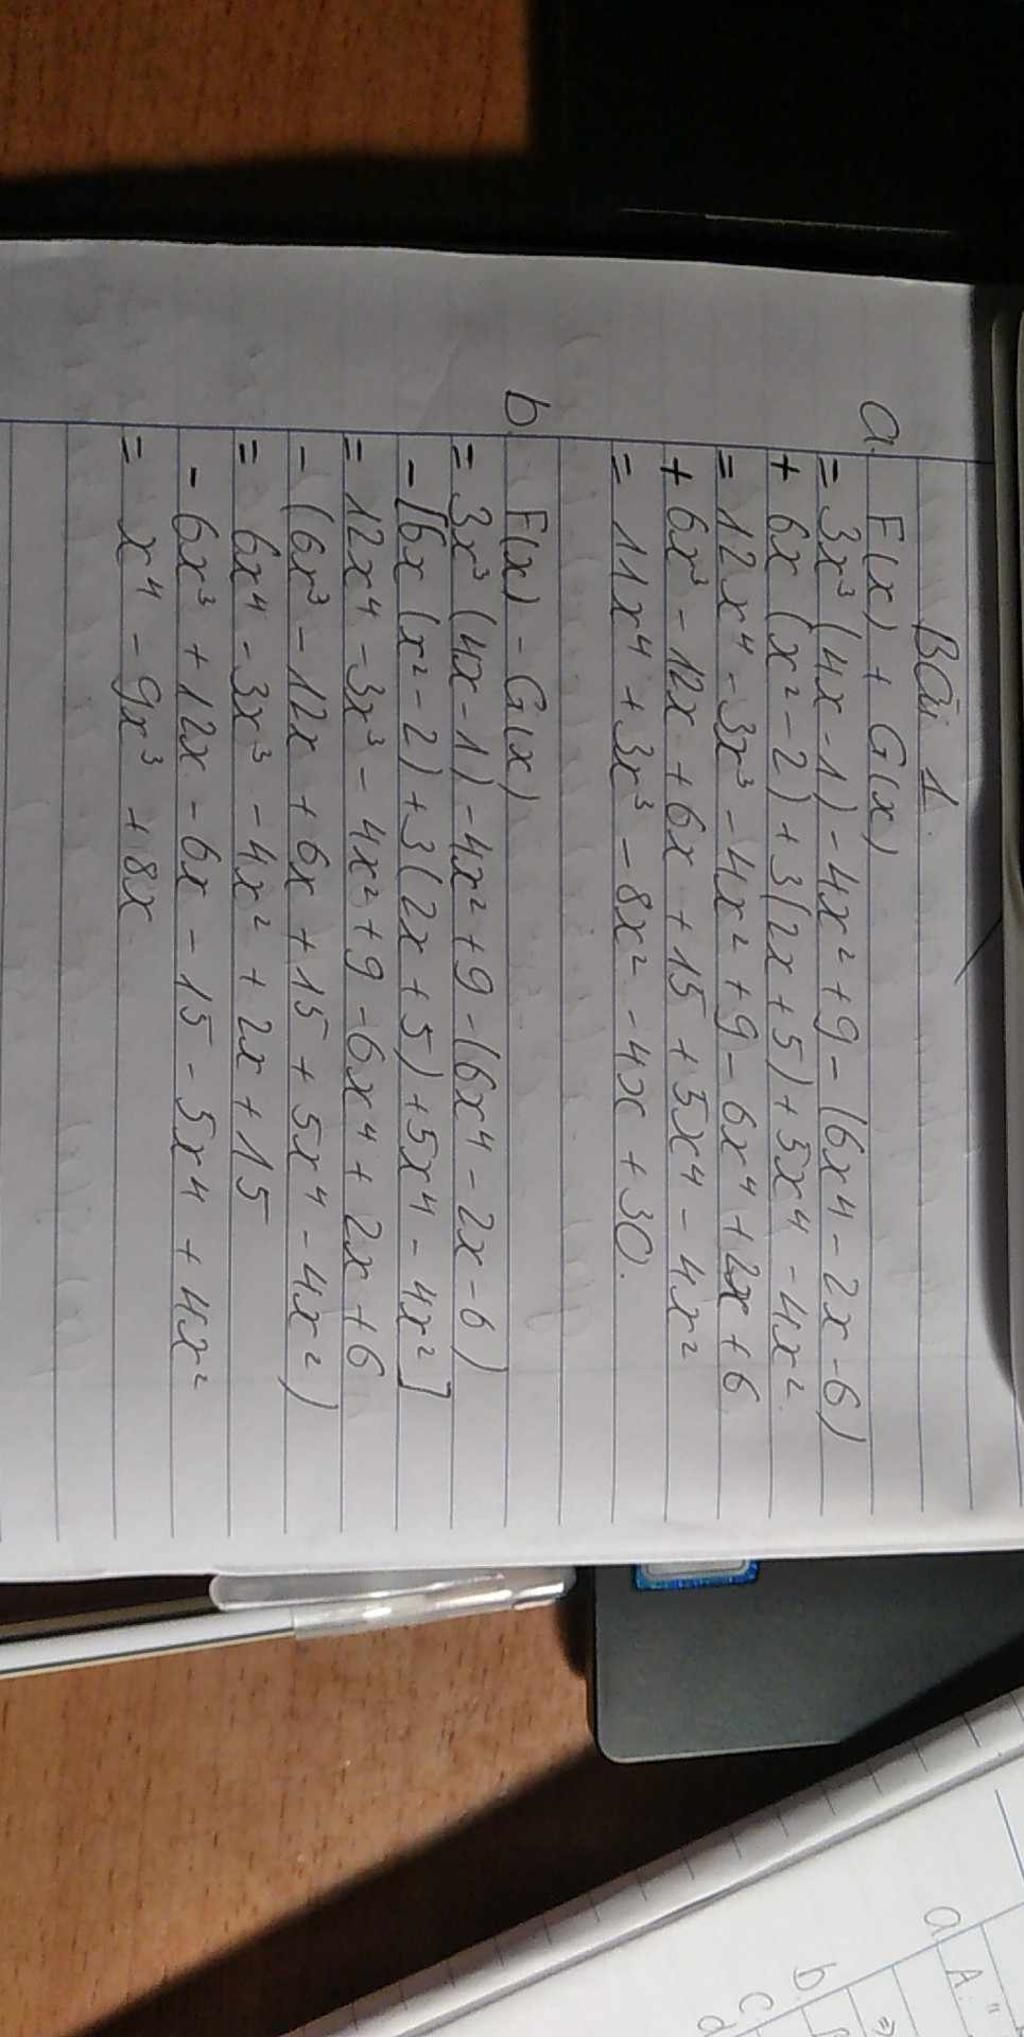 Bài 1.
a. F(x) + G(x)
= 3x³ (4x - 1) - 4x² + 9 - (6x⁴ - 2x - 6)
+ 6x (x² - 2) + 3(2x + 5) + 5x⁴ - 4x²
= 12x⁴ - 3x³ - 4x² + 9 - 6x⁴ + 2x + 6
+ 6x³ - 12x + 6x + 15 + 5x⁴ - 4x²
= 11x⁴ + 3x³ - 8x² - 4x + 30.
b. F(x) - G(x)
= 3x³ (4x - 1) - 4x² + 9 - (6x⁴ - 2x - 6)
- [6x (x² - 2) + 3(2x + 5) + 5x⁴ - 4x²]
= 12x⁴ - 3x³ - 4x² + 9 - 6x⁴ + 2x + 6
- (6x³ - 12x + 6x + 15 + 5x⁴ - 4x²)
= 6x⁴ - 3x³ - 4x² + 2x + 15
- 6x³ + 12x - 6x - 15 - 5x⁴ + 4x²
= x⁴ - 9x³ + 8x
a A. "
b
c
d